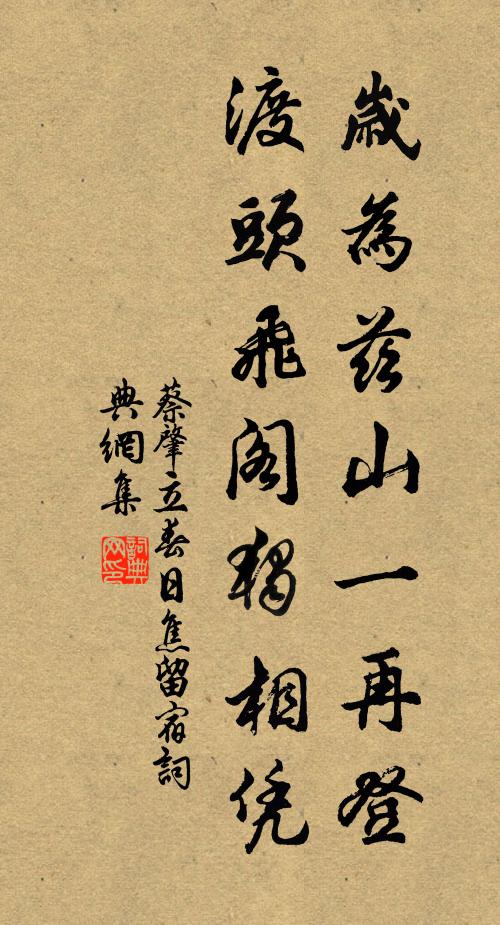 歲為茲山一再登
渡頭飛閣獨相凭
蔡肇立春日焦留宿詞
典網集
詞典
网印